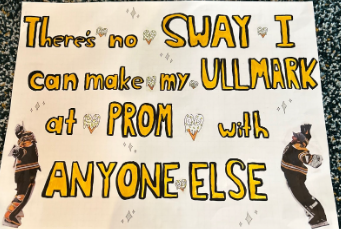 There's no SWAY I
can make my ULLMARK
at PROM with
ANYONE ELSE